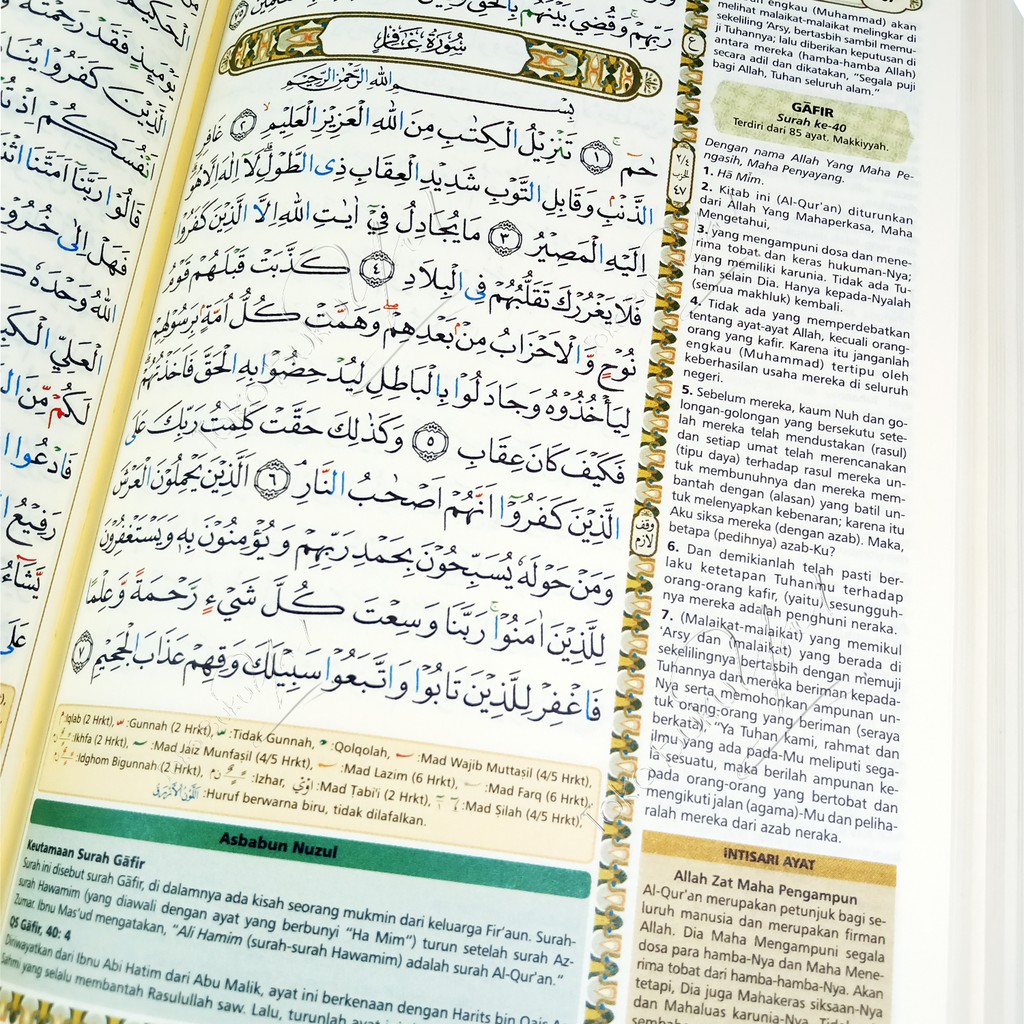 رَبِّهِمْ وَقُضِيَ بَيْنَهُمْ بِالْحَقِّ
سُوْرَةُ غَافِرٍ
بِسْمِ اللّٰهِ الرَّحْمٰنِ الرَّحِيْمِ
حٰمۤ ۚ ١ تَنْزِيْلُ الْكِتٰبِ مِنَ اللّٰهِ الْعَزِيْزِ الْعَلِيْمِۙ ٢ غَافِرِ
الذَّنْۢبِ وَقَابِلِ التَّوْبِ شَدِيْدِ الْعِقَابِ ذِى الطَّوْلِۗ لَآ اِلٰهَ اِلَّا هُوَۗ
اِلَيْهِ الْمَصِيْرُ ٣ مَا يُجَادِلُ فِيْٓ اٰيٰتِ اللّٰهِ اِلَّا الَّذِيْنَ كَفَرُوْا
فَلَا يَغْرُرْكَ تَقَلُّبُهُمْ فِى الْبِلَادِ ٤ كَذَّبَتْ قَبْلَهُمْ قَوْمُ
نُوْحٍ وَّالْاَحْزَابُ مِنْۢ بَعْدِهِمْۖ وَهَمَّتْ كُلُّ اُمَّةٍۢ بِرَسُوْلِهِمْ
لِيَأْخُذُوْهُ وَجَادَلُوْا بِالْبَاطِلِ لِيُدْحِضُوْا بِهِ الْحَقَّ فَاَخَذْتُهُمْ
فَكَيْفَ كَانَ عِقَابِ ٥ وَكَذٰلِكَ حَقَّتْ كَلِمَتُ رَبِّكَ عَلَى
الَّذِيْنَ كَفَرُوْٓا اَنَّهُمْ اَصْحٰبُ النَّارِۘ ٦ اَلَّذِيْنَ يَحْمِلُوْنَ الْعَرْشَ
وَمَنْ حَوْلَهٗ يُسَبِّحُوْنَ بِحَمْدِ رَبِّهِمْ وَيُؤْمِنُوْنَ بِهٖ وَيَسْتَغْفِرُوْنَ
لِلَّذِيْنَ اٰمَنُوْاۚ رَبَّنَا وَسِعْتَ كُلَّ شَيْءٍ رَّحْمَةً وَّعِلْمًا
فَاغْفِرْ لِلَّذِيْنَ تَابُوْا وَاتَّبَعُوْا سَبِيْلَكَ وَقِهِمْ عَذَابَ الْجَحِيْمِ ٧
:Iqlab (2 Hrkt), :Gunnah (2 Hrkt), :Tidak Gunnah, :Qolqolah, :Mad Wajib Muttaşil (4/5 Hrkt),
:Ikhfa (2 Hrkt), :Mad Jaiz Munfaşil (4/5 Hrkt), :Mad Lazim (6 Hrkt), :Mad Farq (6 Hrkt),
:Idghom Bigunnah (2 Hrkt), :Izhar, :Mad Ţabi'i (2 Hrkt), :Mad Şilah (4/5 Hrkt),
:Huruf berwarna biru, tidak dilafalkan.
Asbabun Nuzul
Keutamaan Surah Gāfir
Surah ini disebut surah Gāfir, di dalamnya ada kisah seorang mukmin dari keluarga Fir'aun. Surah-
surah Hawamim (yang diawali dengan ayat yang berbunyi "Ha Mim") turun setelah surah Az-
Zumar. Ibnu Mas'ud mengatakan, "Ali Hamim (surah-surah Hawamim) adalah surah Al-Qur'an."
QS Gāfir, 40: 4
Diriwayatkan dari Ibnu Abi Hatim dari Abu Malik, ayat ini berkenaan dengan Harits bin Qais
Sahmi yang selalu membantah Rasulullah saw. Lalu, turunlah
engkau (Muhammad) akan
melihat malaikat-malaikat melingkar di
sekeliling 'Arsy, bertasbih sambil memu-
ji Tuhannya; lalu diberikan keputusan di
antara mereka (hamba-hamba Allah)
secara adil dan dikatakan, "Segala puji
bagi Allah, Tuhan seluruh alam."
GĀFIR
Surah ke-40
Terdiri dari 85 ayat. Makkiyyah.
Dengan nama Allah Yang Maha Pe-
ngasih, Maha Penyayang.
1. Hā Mīm.
2. Kitab ini (Al-Qur'an) diturunkan
dari Allah Yang Mahaperkasa, Maha
Mengetahui,
3. yang mengampuni dosa dan mene-
rima tobat dan keras hukuman-Nya;
yang memiliki karunia. Tidak ada Tu-
han selain Dia. Hanya kepada-Nyalah
(semua makhluk) kembali.
4. Tidak ada yang memperdebatkan
tentang ayat-ayat Allah, kecuali orang-
orang yang kafir. Karena itu janganlah
engkau (Muhammad) tertipu oleh
keberhasilan usaha mereka di seluruh
negeri.
5. Sebelum mereka, kaum Nuh dan go-
longan-golongan yang bersekutu sete-
lah mereka telah mendustakan (rasul)
dan setiap umat telah merencanakan
(tipu daya) terhadap rasul mereka un-
tuk membunuhnya dan mereka mem-
bantah dengan (alasan) yang batil un-
tuk melenyapkan kebenaran; karena itu
Aku siksa mereka (dengan azab). Maka,
betapa (pedihnya) azab-Ku?
6. Dan demikianlah telah pasti ber-
laku ketetapan Tuhanmu terhadap
orang-orang kafir, (yaitu) sesungguh-
nya mereka adalah penghuni neraka.
7. (Malaikat-malaikat) yang memikul
'Arsy dan (malaikat) yang berada di
sekelilingnya bertasbih dengan memuji
Tuhannya dan mereka beriman kepada-
Nya serta memohonkan ampunan un-
tuk orang-orang yang beriman (seraya
berkata), "Ya Tuhan kami, rahmat dan
ilmu yang ada pada-Mu meliputi sega-
la sesuatu, maka berilah ampunan ke-
pada orang-orang yang bertobat dan
mengikuti jalan (agama)-Mu dan peliha-
ralah mereka dari azab neraka.
INTISARI AYAT
Allah Zat Maha Pengampun
Al-Qur'an merupakan petunjuk bagi se-
luruh manusia dan merupakan firman
Allah. Dia Maha Mengampuni segala
dosa para hamba-Nya dan Maha Mene-
rima tobat dari hamba-hamba-Nya. Akan
tetapi, Dia juga Mahakeras siksaan-Nya
dan Mahaluas karunia-Nya.